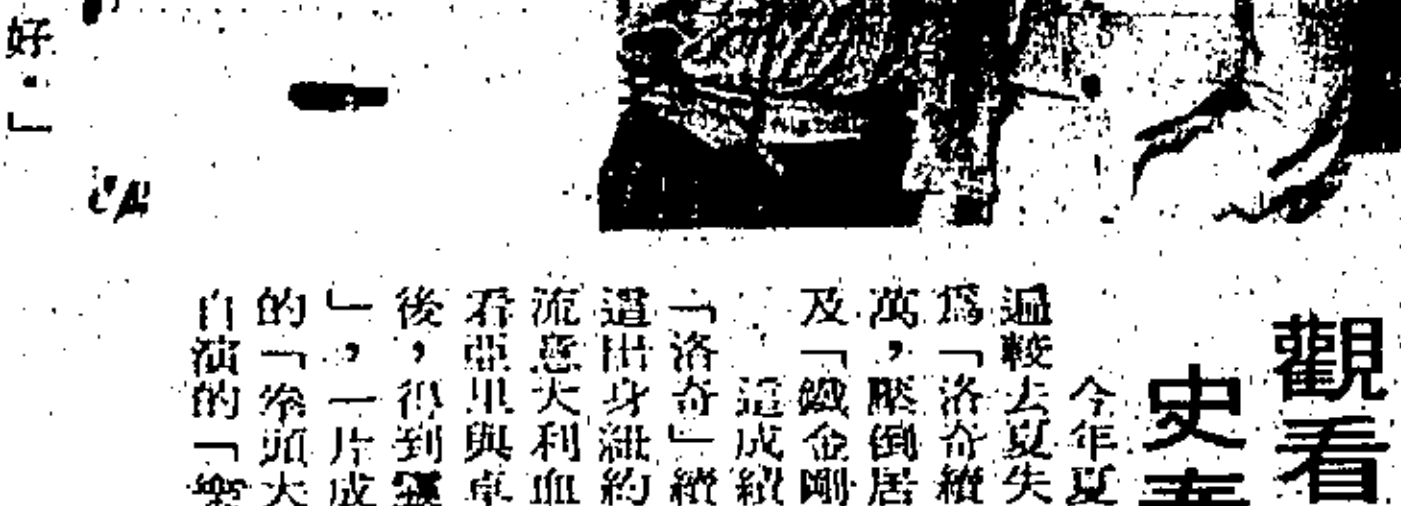 觀看
史泰
今年夏
遍較去夏失
為「洛奇續
萬，壓倒居
及「鐵金剛
這成績
「洛奇」續
這出身紐約
流意大利血
看亞里與卓
後，得到靈
」，一片成
的「拳頭大
自演的「樂
好：」